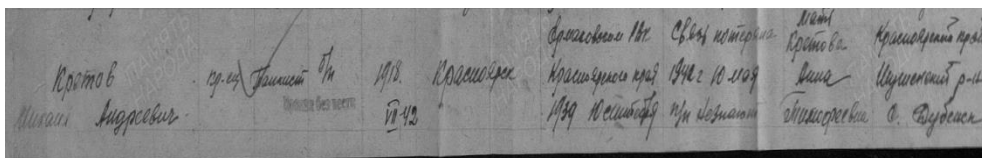 Кротов
Михаил Андреевич
кр-ец
Танкист
б/п
Пропал без вести
1918.
VII-42
Красноярск
Ермаковским РВК
Красноярского края
1939 10 сентября
Связь потеряна
1942 г 10 мая
п/я
мать
Кротова
Анна
Тимофеевна
Красноярский край
Шушенский р-н
с. Дубенск